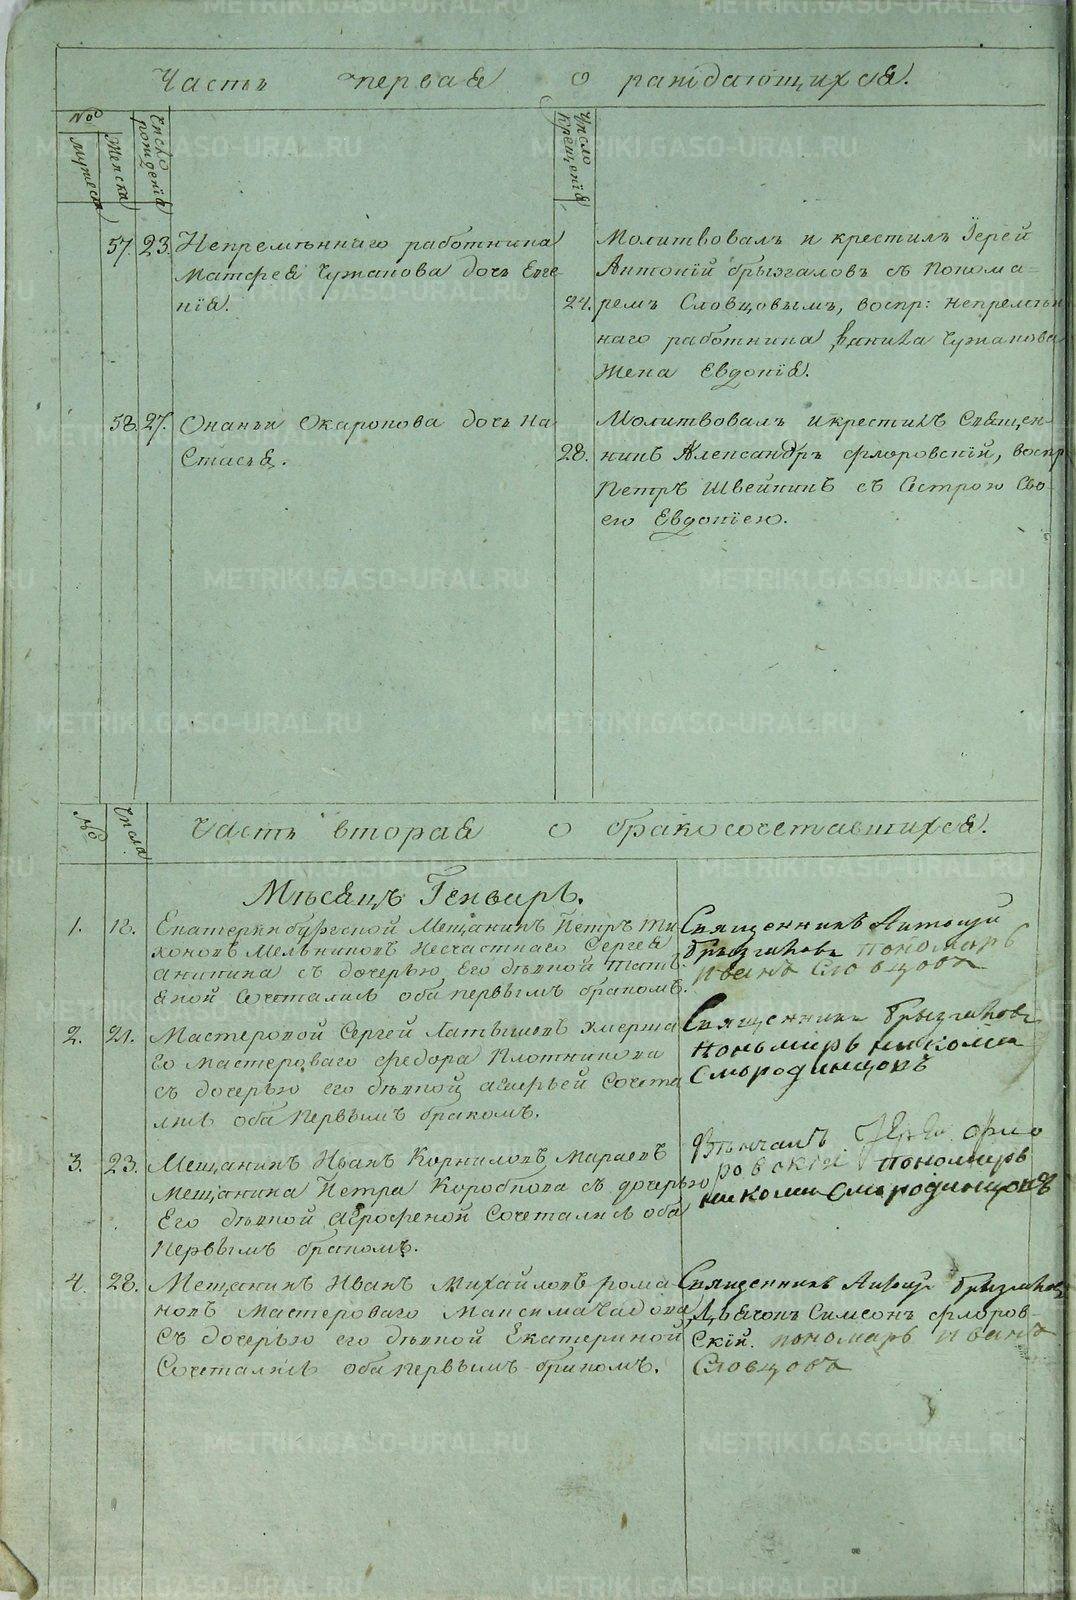 Часть первая о раждающихся.
№
мужеска
Женска
Число рождения
Число крещенія
57. 23. Непременнаго работника
Матфея Чужанова дочь Евге-
нія.
24.
Молитвовалъ и крестилъ Іерей
Антоній брызгаловъ съ Понома-
ремъ Словцовымъ, воспр: непремѣн
наго работника Чужанова
Жена Евдокія.
58. 27. Онаньи Окаронова дочь На
стасья.
28.
Молитвовалъ и крестилъ Священ-
никъ Александръ флоровскій, воспр
Петръ Швейкинъ съ Сестрою Сво-
ею Евдокіею.
№
Числа
Часть вторая о бракосочетавшихся.
Мѣсяцъ Генварь.
1. 18. Екатеринбургской Мещанинъ Петръ Ти
хоновъ Мельниковъ Несчастнаго Сергея
Аникина съ дочерью Его дѣвкой Тать
яной Сочетались оба первымъ бракомъ.
Священникъ Антоній
брызгаловъ пономарь
Иванъ Словцовъ
2. 21. Мастеровой Сергей Латышевъ умерша
го мастероваго федора Плотникова
съ дочерью его дѣвкой Сочета
лись оба Первымъ бракомъ.
Священникъ брызгаловъ
Пономарь николай
Смородинцовъ
3. 23. Мещанинъ Иванъ Корниловъ Мараевъ
Мещанина Петра Коробкова съ дочерью
Его дѣвкой Агрофеной Сочетались оба
Первымъ бракомъ.
Вѣнчалъ Іерей Фло
ровскій Пономарь
николай Смородинцовъ
4. 28. Мещанинъ Иванъ Михайловъ рома
новъ Мастероваго Максима Чадова
съ дочерью его дѣвкой Екатериной
Сочетались оба первымъ бракомъ.
Священникъ Антоній брызгаловъ
Дьячокъ Симеонъ флоров-
скій. пономарь Иванъ
Словцовъ
METRIKI.GASO-URAL.RU